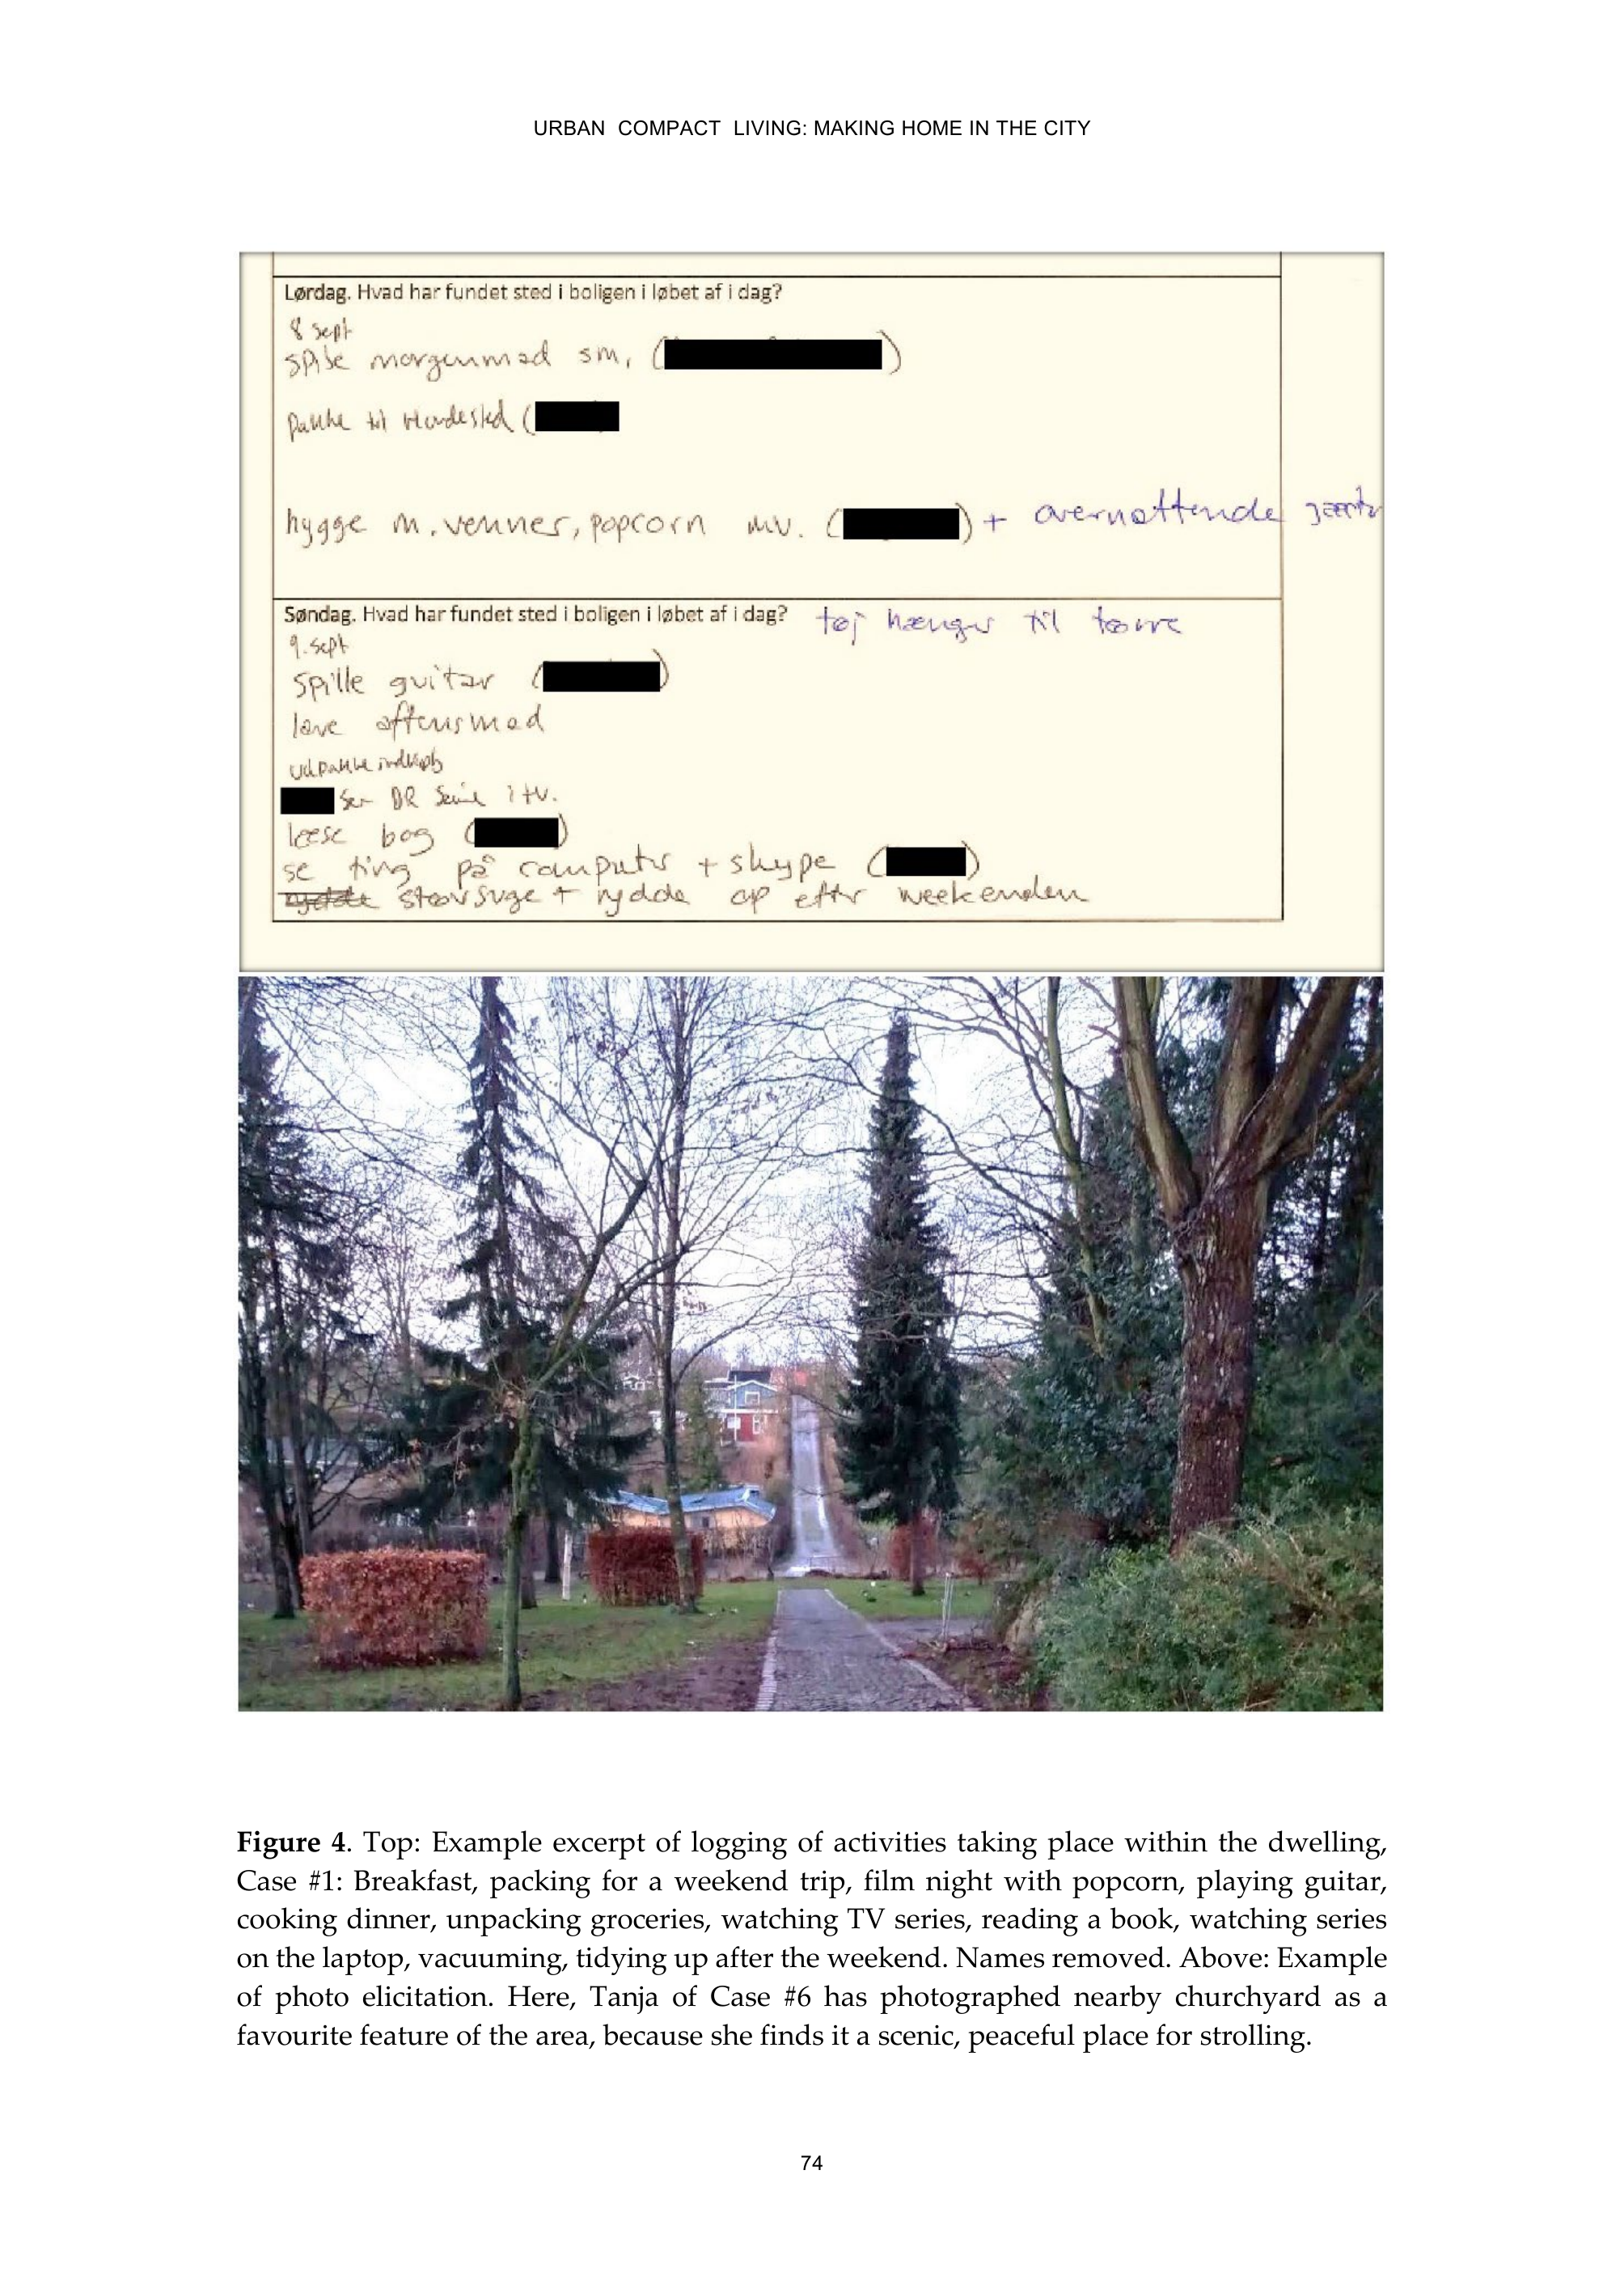 URBAN COMPACT LIVING: MAKING HOME IN THE CITY
Lørdag. Hvad har fundet sted i boligen i løbet af i dag?
8 sept
spise morgenmad sm, ( )
pakke til (
hygge m. venner, popcorn mv. ( ) + overnattende
Søndag. Hvad har fundet sted i boligen i løbet af i dag? tøj hænger til tørre
9. sept
spille guitar ( )
lave aftensmad
udpakke indkøb
ser DR serie i tv.
læse bog ( )
se ting på computer + skype ( )
rydde støvsuge + rydde op efter weekenden
Figure 4. Top: Example excerpt of logging of activities taking place within the dwelling,
Case #1: Breakfast, packing for a weekend trip, film night with popcorn, playing guitar,
cooking dinner, unpacking groceries, watching TV series, reading a book, watching series
on the laptop, vacuuming, tidying up after the weekend. Names removed. Above: Example
of photo elicitation. Here, Tanja of Case #6 has photographed nearby churchyard as a
favourite feature of the area, because she finds it a scenic, peaceful place for strolling.
74